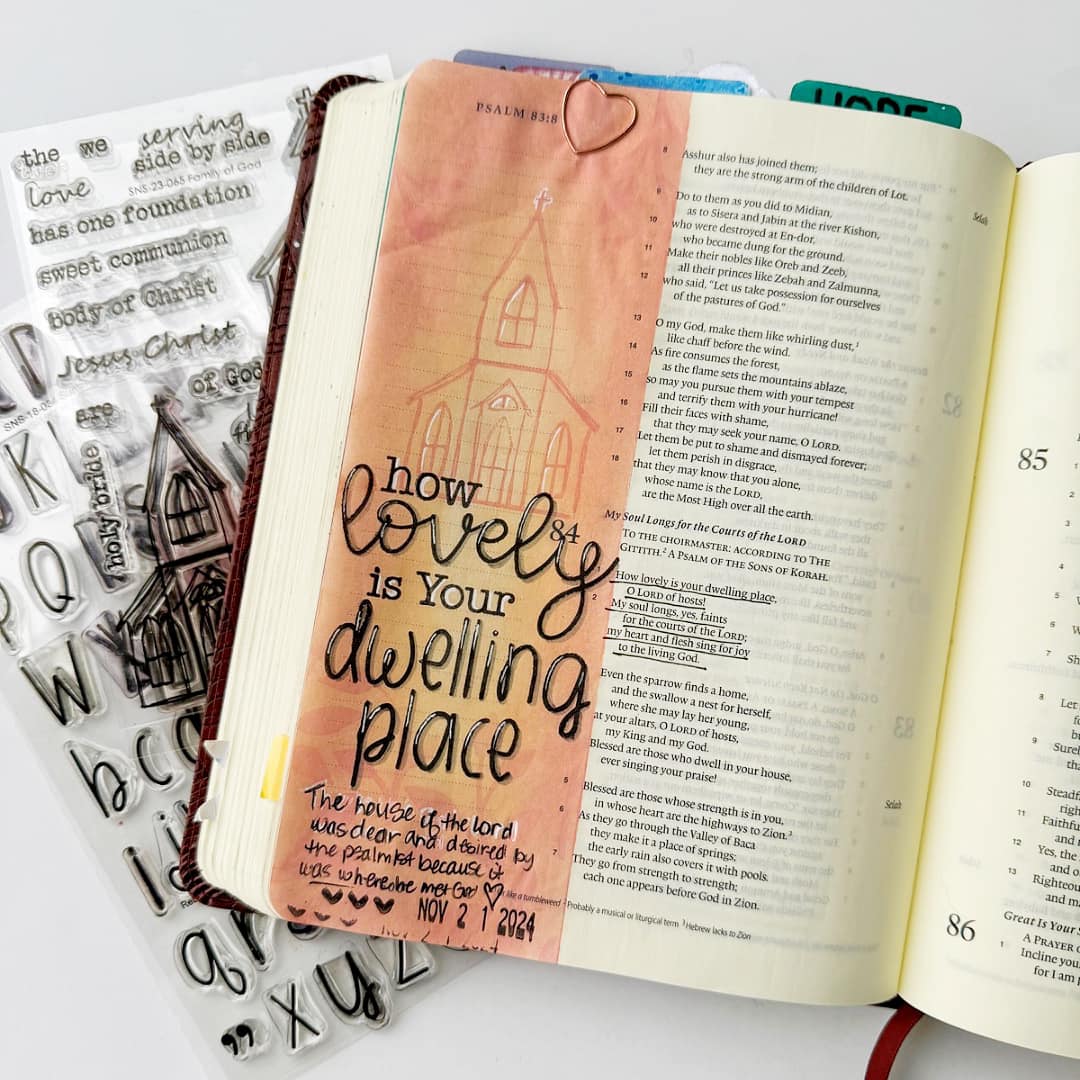 the we serving
side by side
SNS-23-065 Family of God
love
has one foundation
sweet communion
body of Christ
Jesus Christ
of God
are
holy bride
K
Q
W
b c a
a
x y z
HOPE
PSALM 83:8
how
lovely
is Your
dwelling
place
The house of the lord
was dear and desired by
the psalmist because it
was where he met God
NOV 2 1 2024
8 Asshur also has joined them;
they are the strong arm of the children of Lot. Selah
9 Do to them as you did to Midian,
as to Sisera and Jabin at the river Kishon,
10 who were destroyed at En-dor,
who became dung for the ground.
11 Make their nobles like Oreb and Zeeb,
all their princes like Zebah and Zalmunna,
12 who said, “Let us take possession for ourselves
of the pastures of God.”
13 O my God, make them like whirling dust,¹
like chaff before the wind.
14 As fire consumes the forest,
as the flame sets the mountains ablaze,
15 so may you pursue them with your tempest
and terrify them with your hurricane!
16 Fill their faces with shame,
that they may seek your name, O LORD.
17 Let them be put to shame and dismayed forever;
let them perish in disgrace,
18 that they may know that you alone,
whose name is the LORD,
are the Most High over all the earth.
My Soul Longs for the Courts of the LORD
84 TO THE CHOIRMASTER: ACCORDING TO THE
GITTITH.² A PSALM OF THE SONS OF KORAH.
How lovely is your dwelling place,
O LORD of hosts!
2 My soul longs, yes, faints
for the courts of the LORD;
my heart and flesh sing for joy
to the living God.
Even the sparrow finds a home,
and the swallow a nest for herself,
where she may lay her young,
at your altars, O LORD of hosts,
my King and my God.
Blessed are those who dwell in your house,
ever singing your praise! Selah
5 Blessed are those whose strength is in you,
in whose heart are the highways to Zion.³
6 As they go through the Valley of Baca
they make it a place of springs;
the early rain also covers it with pools.
7 They go from strength to strength;
each one appears before God in Zion.
like a tumbleweed
Probably a musical or liturgical term ³ Hebrew lacks to Zion
85
1
2
3 Let
9 Surely
10 Steadf
11 Faithful
12 Yes, the
13
86 Great Is Your
A PRAYER O
1 Incline you
for I am